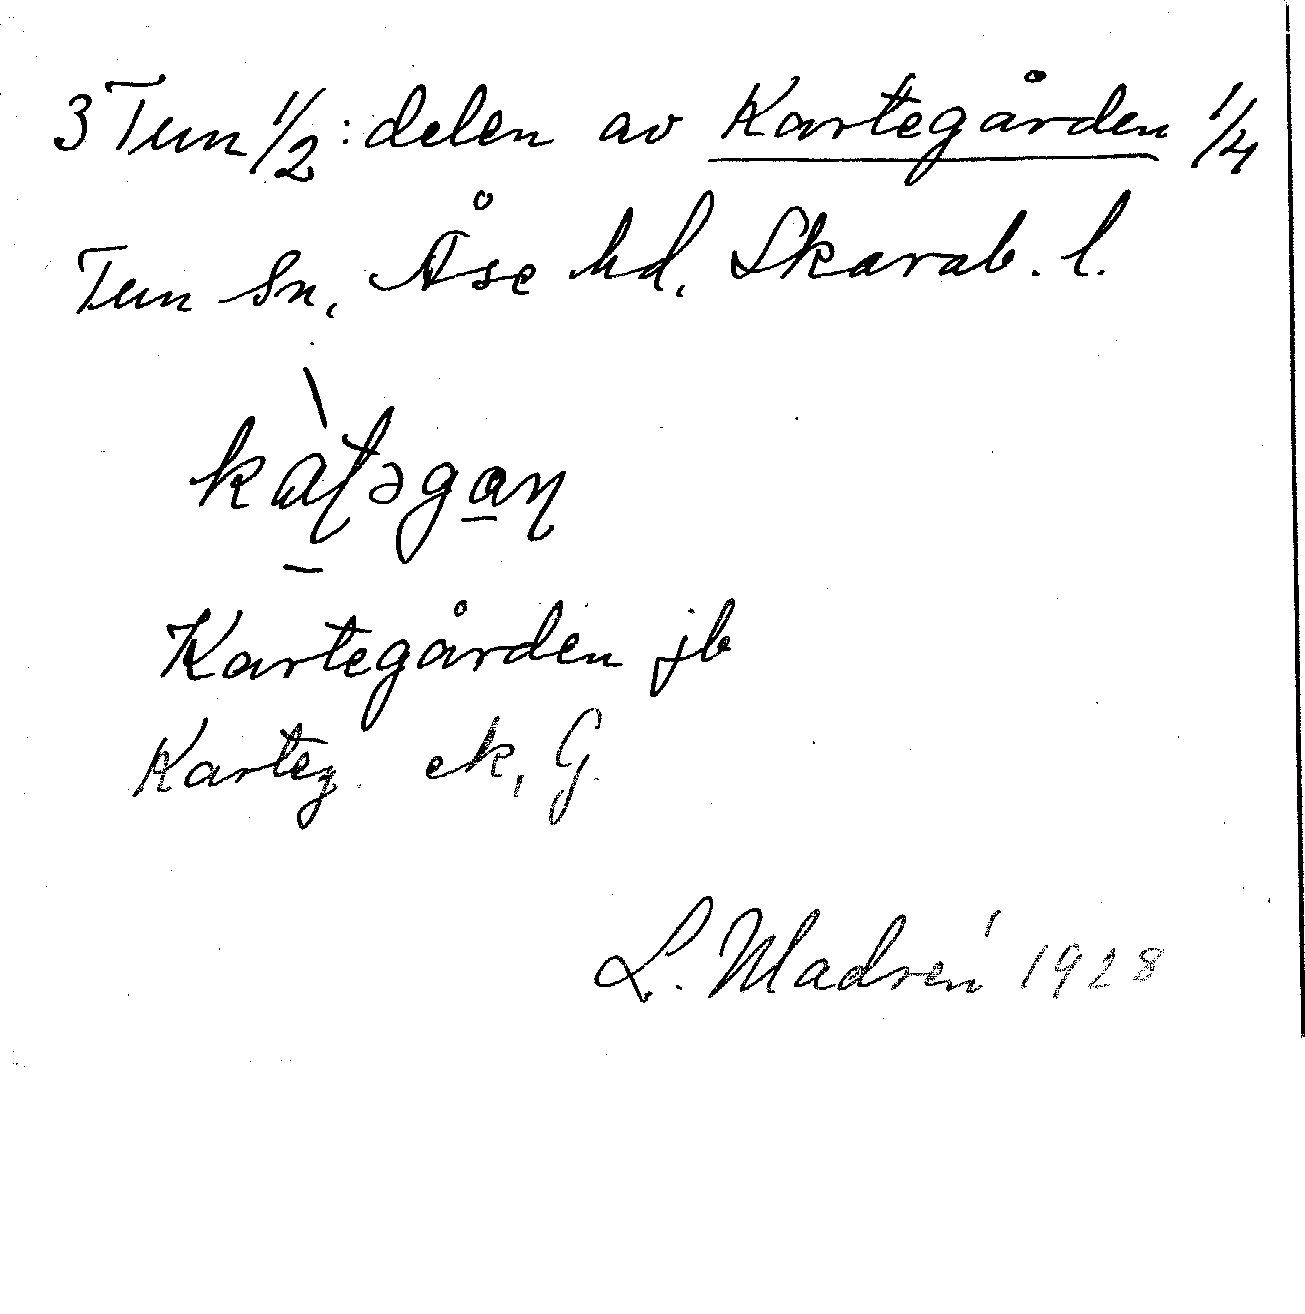 3 Tun 1/2:delen av Kartegården 1/4
Tun Sn, Åse hd, Skarab. l.
kàʈəgaɳ
Kartegården jb
Karteg. ek, G.
L. Madren 1928